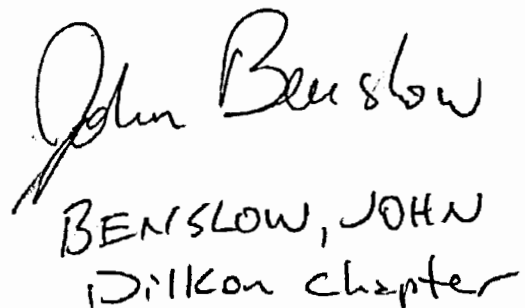 John Benslow
BENSLOW, JOHN
Dilkon Chapter